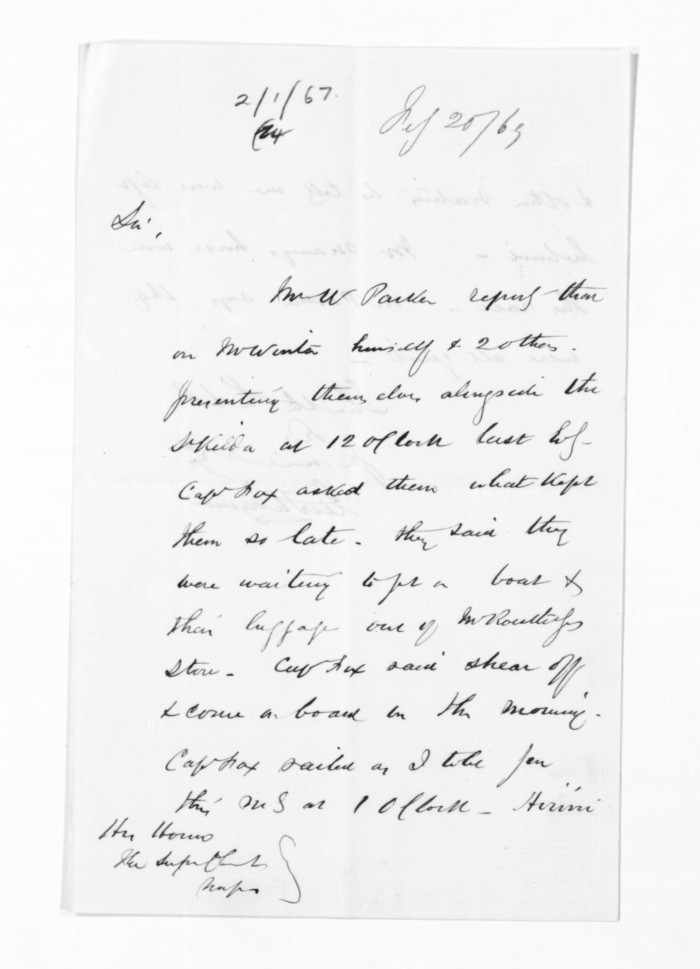 2/1/67.
20/69
Sir,
Mr W Parker reports that
on Mr Winter himself & 2 others
presenting themselves alongside the
St Kilda at 12 O'Clock last Evg
Capt Fox asked them what kept
them so late - they said they
were waiting to get a boat &
their luggage out of Mr Routledges
store - Capt Fox said shear off
& come on board in the morning -
Capt Fox sailed as I told you
this Mg at 1 O Clock - Hirini
His Honor
The Superintendent
Napier